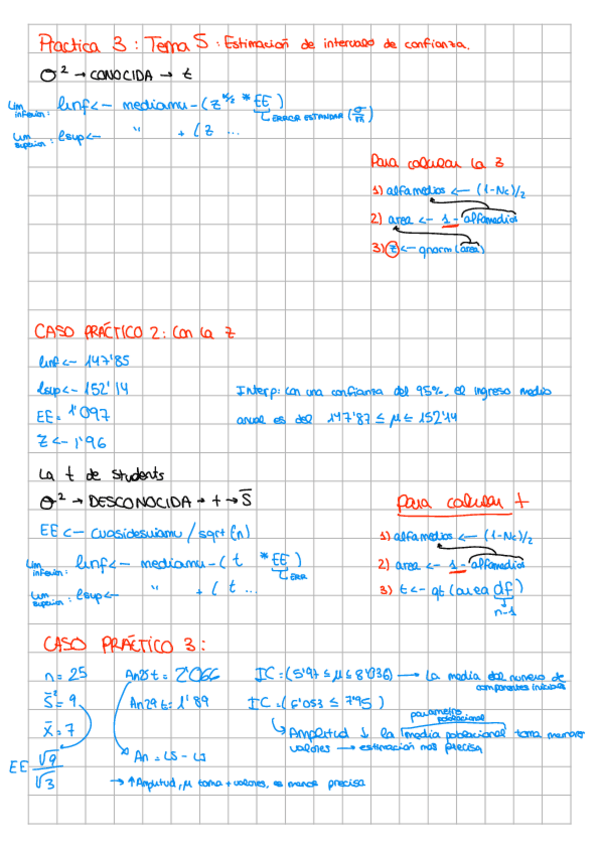 Practica 3: Tema 5: Estimación de intervalo de confianza.
σ² → CONOCIDA → t
Lim inferior: linf<- mediamu - (z^α/2 * EE)
ERROR ESTANDAR (σ/√n)
Lim superior: lsup<- " + (z ...
Para calcular la z
1) alfamedios <- (1-Nc)/2
2) area <- 1 - alfamedios
3) z <- qnorm (area)
CASO PRÁCTICO 2: Con la z
linf <- 147'85
lsup <- 152'14
EE = 1'097
z <- 1'96
Interp: con una confianza del 95%, el ingreso medio
anual es del 147'87 ≤ μ ≤ 152'14
La t de students
σ² → DESCONOCIDA → t → S̅
EE <- cuasidesviamu / sqrt (n)
Lim inferior: linf<- mediamu - ( t * EE )
ERR
Lim superior: lsup<- " + ( t ...
Para calcular t
1) alfamedios <- (1-Nc)/2
2) area <- 1 - alfamedios
3) t <- qt (area df)
n-1
CASO PRÁCTICO 3:
n = 25
S̅² = 9
X̅ = 7
EE √9/√3
An25 t = 2'066
An29 t = 1'89
An = LS - LI
→ ↑Amplitud, μ toma + valores, es menos precisa
IC = (5'97 ≤ μ ≤ 8'036) → La media del numero de
componentes iniciales
IC = (6'053 ≤ 7'95)
parametro poblacional
Amplitud ↓ la media poblacional toma menores
valores → estimación más precisa